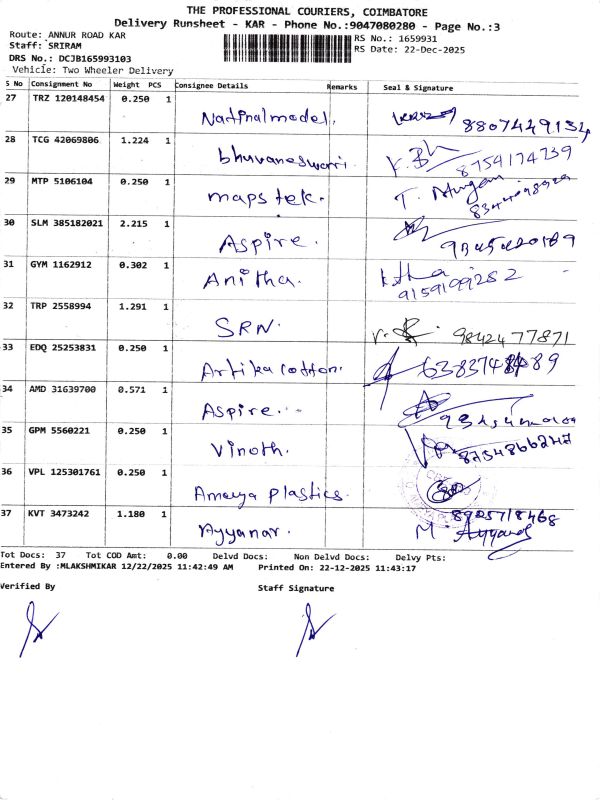 THE PROFESSIONAL COURIERS, COIMBATORE
Delivery Runsheet - KAR - Phone No.:9047080280 - Page No.:3
Route: ANNUR ROAD KAR RS No.: 1659931
Staff: SRIRAM RS Date: 22-Dec-2025
DRS No.: DCJB165993103
Vehicle: Two Wheeler Delivery
S No Consignment No Weight PCS Consignee Details Remarks Seal & Signature
27 TRZ 120148454 0.250 1 National model. 8807449134
28 TCG 42069806 1.224 1 bhuvaneswari 8754174239
29 MTP 5106104 0.250 1 maps tek. T. Murugan
30 SLM 385182021 2.215 1 Aspire.
31 GYM 1162912 0.302 1 Anitha. 9159199282
32 TRP 2558994 1.291 1 SRN. 9842477871
33 EDQ 25253831 0.250 1 Artika cotton.
34 AMD 31639700 0.571 1 Aspire.
35 GPM 5560221 0.250 1 Vinoth. 8754866247
36 VPL 125301761 0.250 1 Ameya plastics.
37 KVT 3473242 1.180 1 Ayyanar. 8905718468
M Ayyanar
Tot Docs: 37 Tot COD Amt: 0.00 Delvd Docs: Non Delvd Docs: Delvy Pts:
Entered By :MLAKSHMIKAR 12/22/2025 11:42:49 AM Printed On: 22-12-2025 11:43:17
Verified By Staff Signature